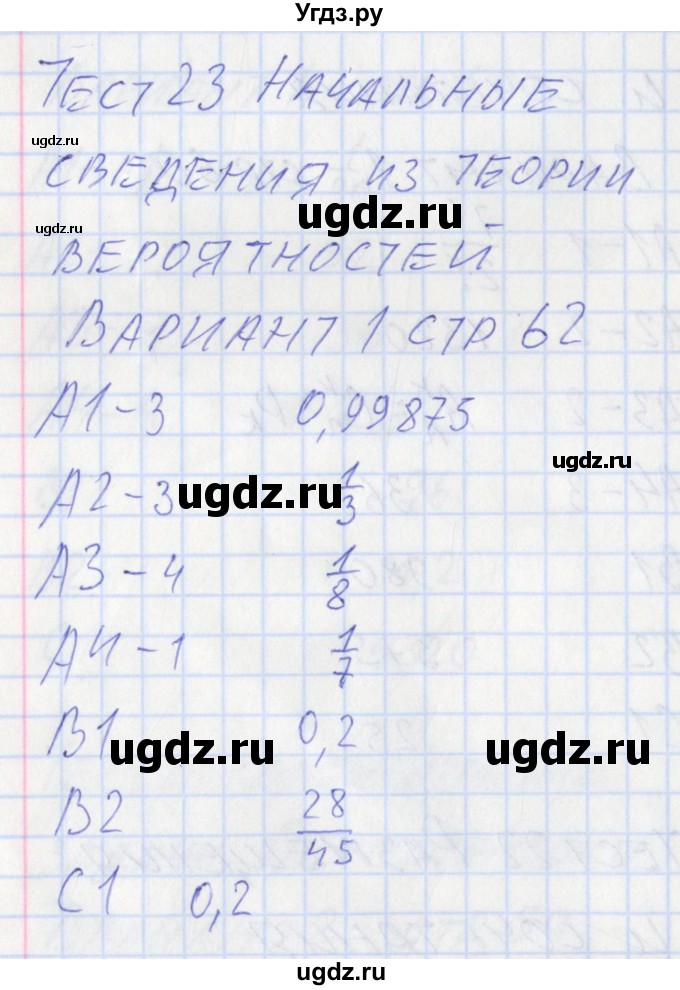 Угдз.ру
Тест 23 Начальные
ugdz.ru
сведения из теории
ugdz.ru
ugdz.ru
вероятностей
Вариант 1 стр 62
А1-3 0,99875
ugdz.ru
А2-3 1/3
ugdz.ru
А3-4 1/8
А4-1 1/7
В1 0,2
ugdz.ru ugdz.ru
В2 28/45
С1 0,2
ugdz.ru